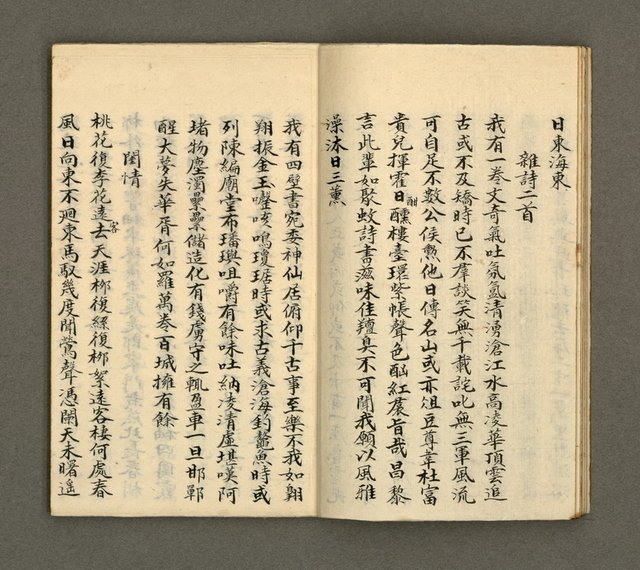 日東海東
雜詩二首
我有一卷文奇氣吐氛氳清湧滄江水高凌華頂雲追
古或不及矯時已不羣談笑無千載詫叱無三軍風流
可自足不數公侯勲他日傳名山或亦俎豆尊韋杜富
貴兒揮霍日酣醲樓臺環紫帳聲色酗紅裙旨哉昌黎
言此輩如聚蚊詩書滋味佳羶臭不可聞我願以風雅
澡沐日三薰
我有四壁書宛委神仙居俯仰千古事至樂不我如翱
翔振金玉嚶咳鳴瓊琚時或求古義滄海釣鼇魚時或
列陳編廟堂布璠璵咀嚼有餘味吐納凌清虛堪嘆阿
堵物塵濁纍纍儲造化有錢虜守之輒盈車一旦邯鄲
醒大夢失華胥何如羅萬卷百城擁有餘
閨情
桃花復李花遠客去天涯柳復綠復柳絮遠客棲何處春
風日向東不迴東馬馭幾度聞鶯聲憑闌天未曙遥